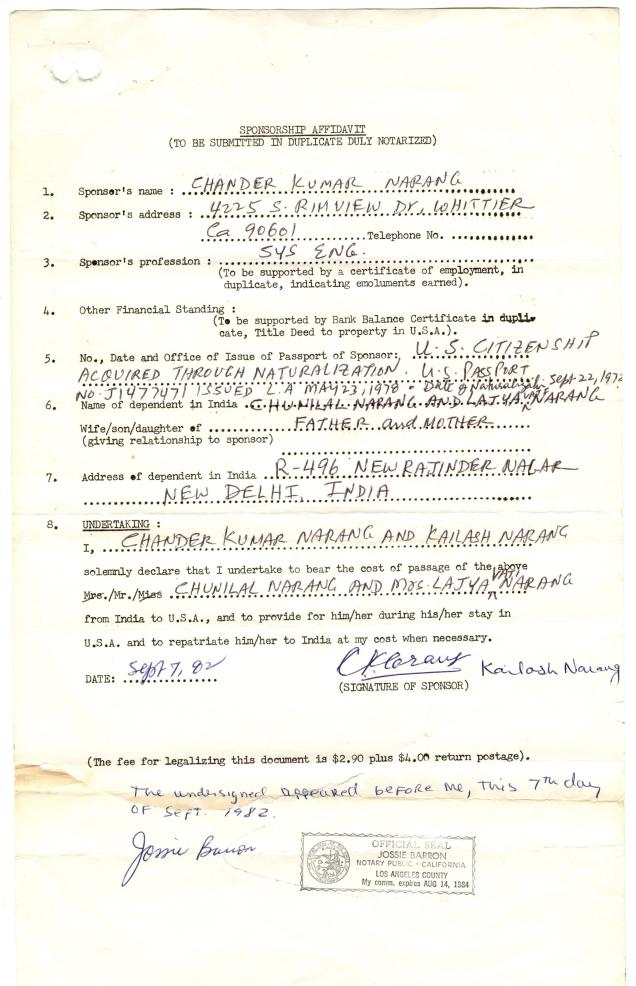 SPONSORSHIP AFFIDAVIT
(TO BE SUBMITTED IN DUPLICATE DULY NOTARIZED)
1. Sponsor's name : CHANDER KUMAR NARANG
2. Sponsor's address : 4225 S. RIMVIEW Dr, WHITTIER
Ca 90601 Telephone No.
3. Sponsor's profession : SYS ENG.
(To be supported by a certificate of employment, in
duplicate, indicating emoluments earned).
4. Other Financial Standing :
(To be supported by Bank Balance Certificate in dupli-
cate, Title Deed to property in U.S.A.).
5. No., Date and Office of Issue of Passport of Sponsor: U.S. CITIZENSHIP
ACQUIRED THROUGH NATURALIZATION. U.S. PASSPORT
NO. J1477471 ISSUED L.A MAY 23, 1978 - Date of Naturalizatn Sept 22, 1972
6. Name of dependent in India CHUNILAL NARANG AND LAJYA VATI NARANG
Wife/son/daughter of FATHER and MOTHER
(giving relationship to sponsor)
7. Address of dependent in India R-496 NEW RAJINDER NAGAR
NEW DELHI, INDIA
8. UNDERTAKING :
I, CHANDER KUMAR NARANG AND KAILASH NARANG
solemnly declare that I undertake to bear the cost of passage of the above
Mrs./Mr./Miss CHUNILAL NARANG AND Mrs. LAJYA VATI NARANG
from India to U.S.A., and to provide for him/her during his/her stay in
U.S.A. and to repatriate him/her to India at my cost when necessary.
DATE: Sept 7, 82 CKNarang Kailash Narang
(SIGNATURE OF SPONSOR)
(The fee for legalizing this document is $2.90 plus $4.00 return postage).
The undersigned appeared before me, this 7th day
OF Sept. 1982.
Jossie Barron
OFFICIAL SEAL
JOSSIE BARRON
NOTARY PUBLIC - CALIFORNIA
LOS ANGELES COUNTY
My comm. expires AUG 14, 1984